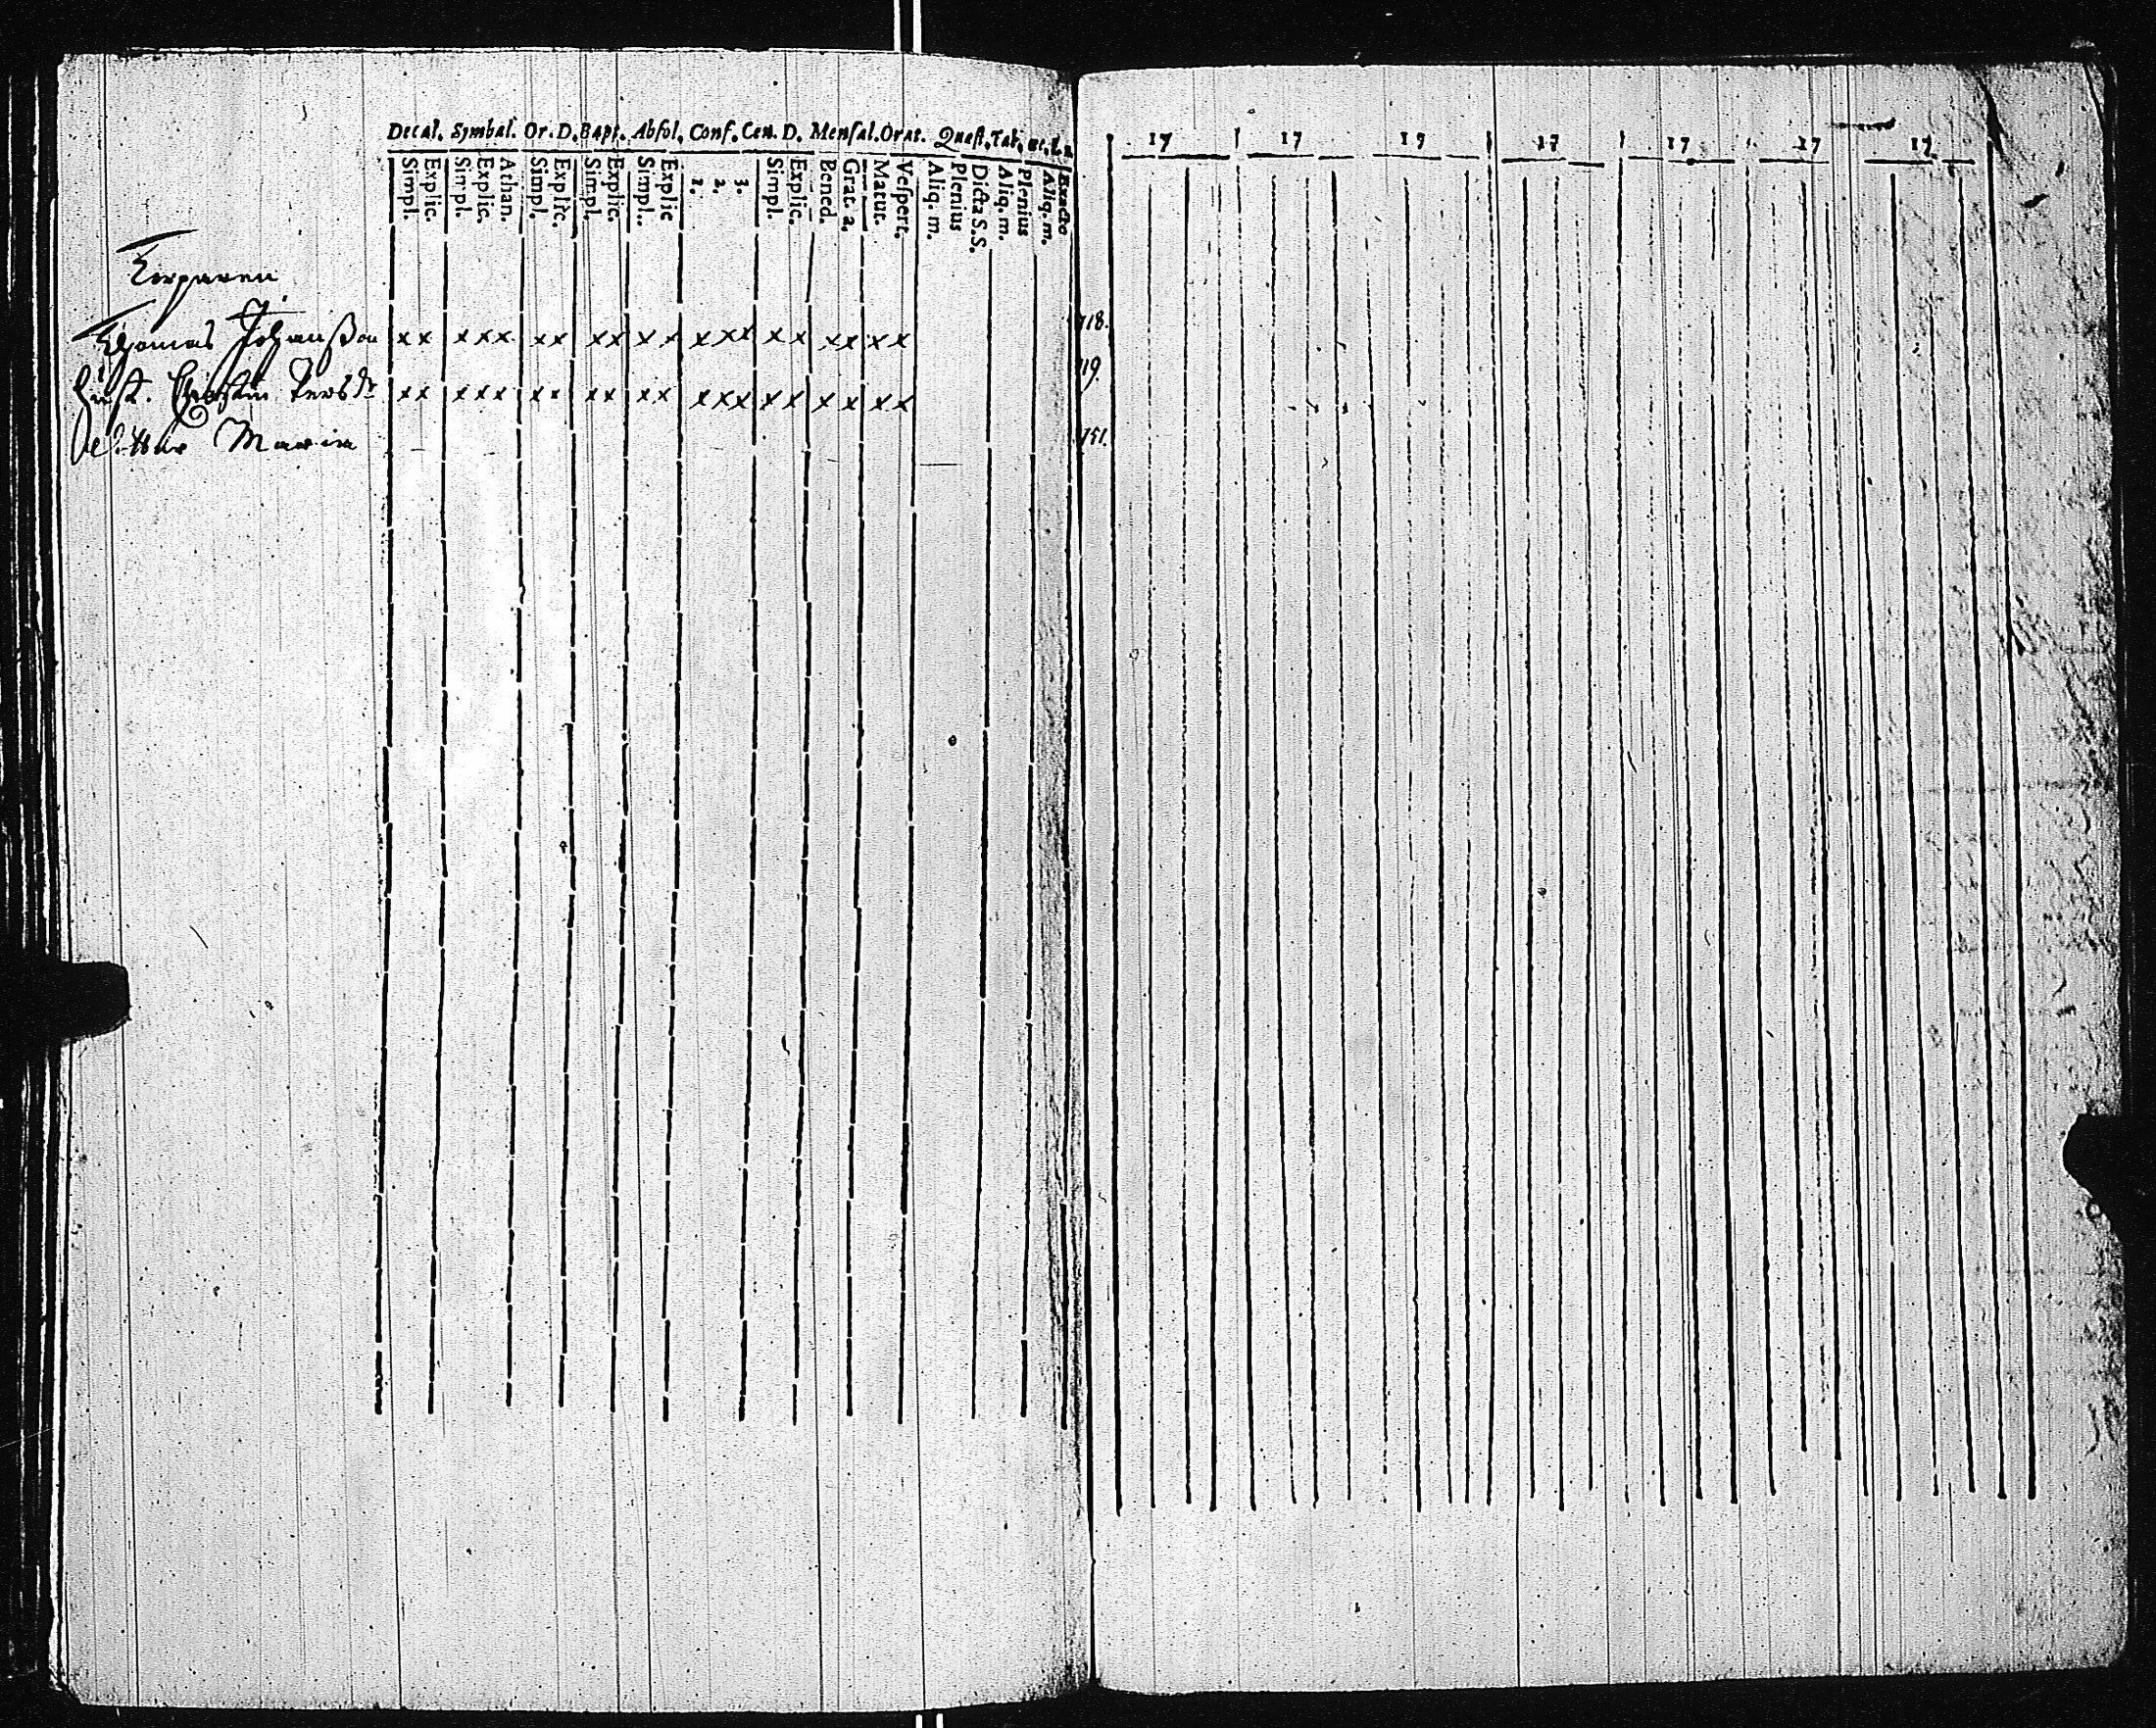 Decal. Symbal. Or. D. Bapt. Absol. Conf. Cœn. D. Mensal. Orat. Quæst. Tab. œc. L. 2.
Simpl. Explic. Simpl. Explic. Athan. Simpl. Explic. Simpl. Explic. Simpl. Explic 1. 2. 3. Simpl. Explic. Bened. Grat. a. Matut. Vespert. Aliq. m. Plenius Dicta S.S. Aliq. m. Plenius Aliq. m. Exacte
17 17 17 17 17 17 17
Torparen
Thomas Johanßon xx xxx xx xx xx xxx xx xx xx 718.
Hust. Christin Persdr xx xxx xx xx xx xxx xx xx xx 719.
Dotter Maria 751.